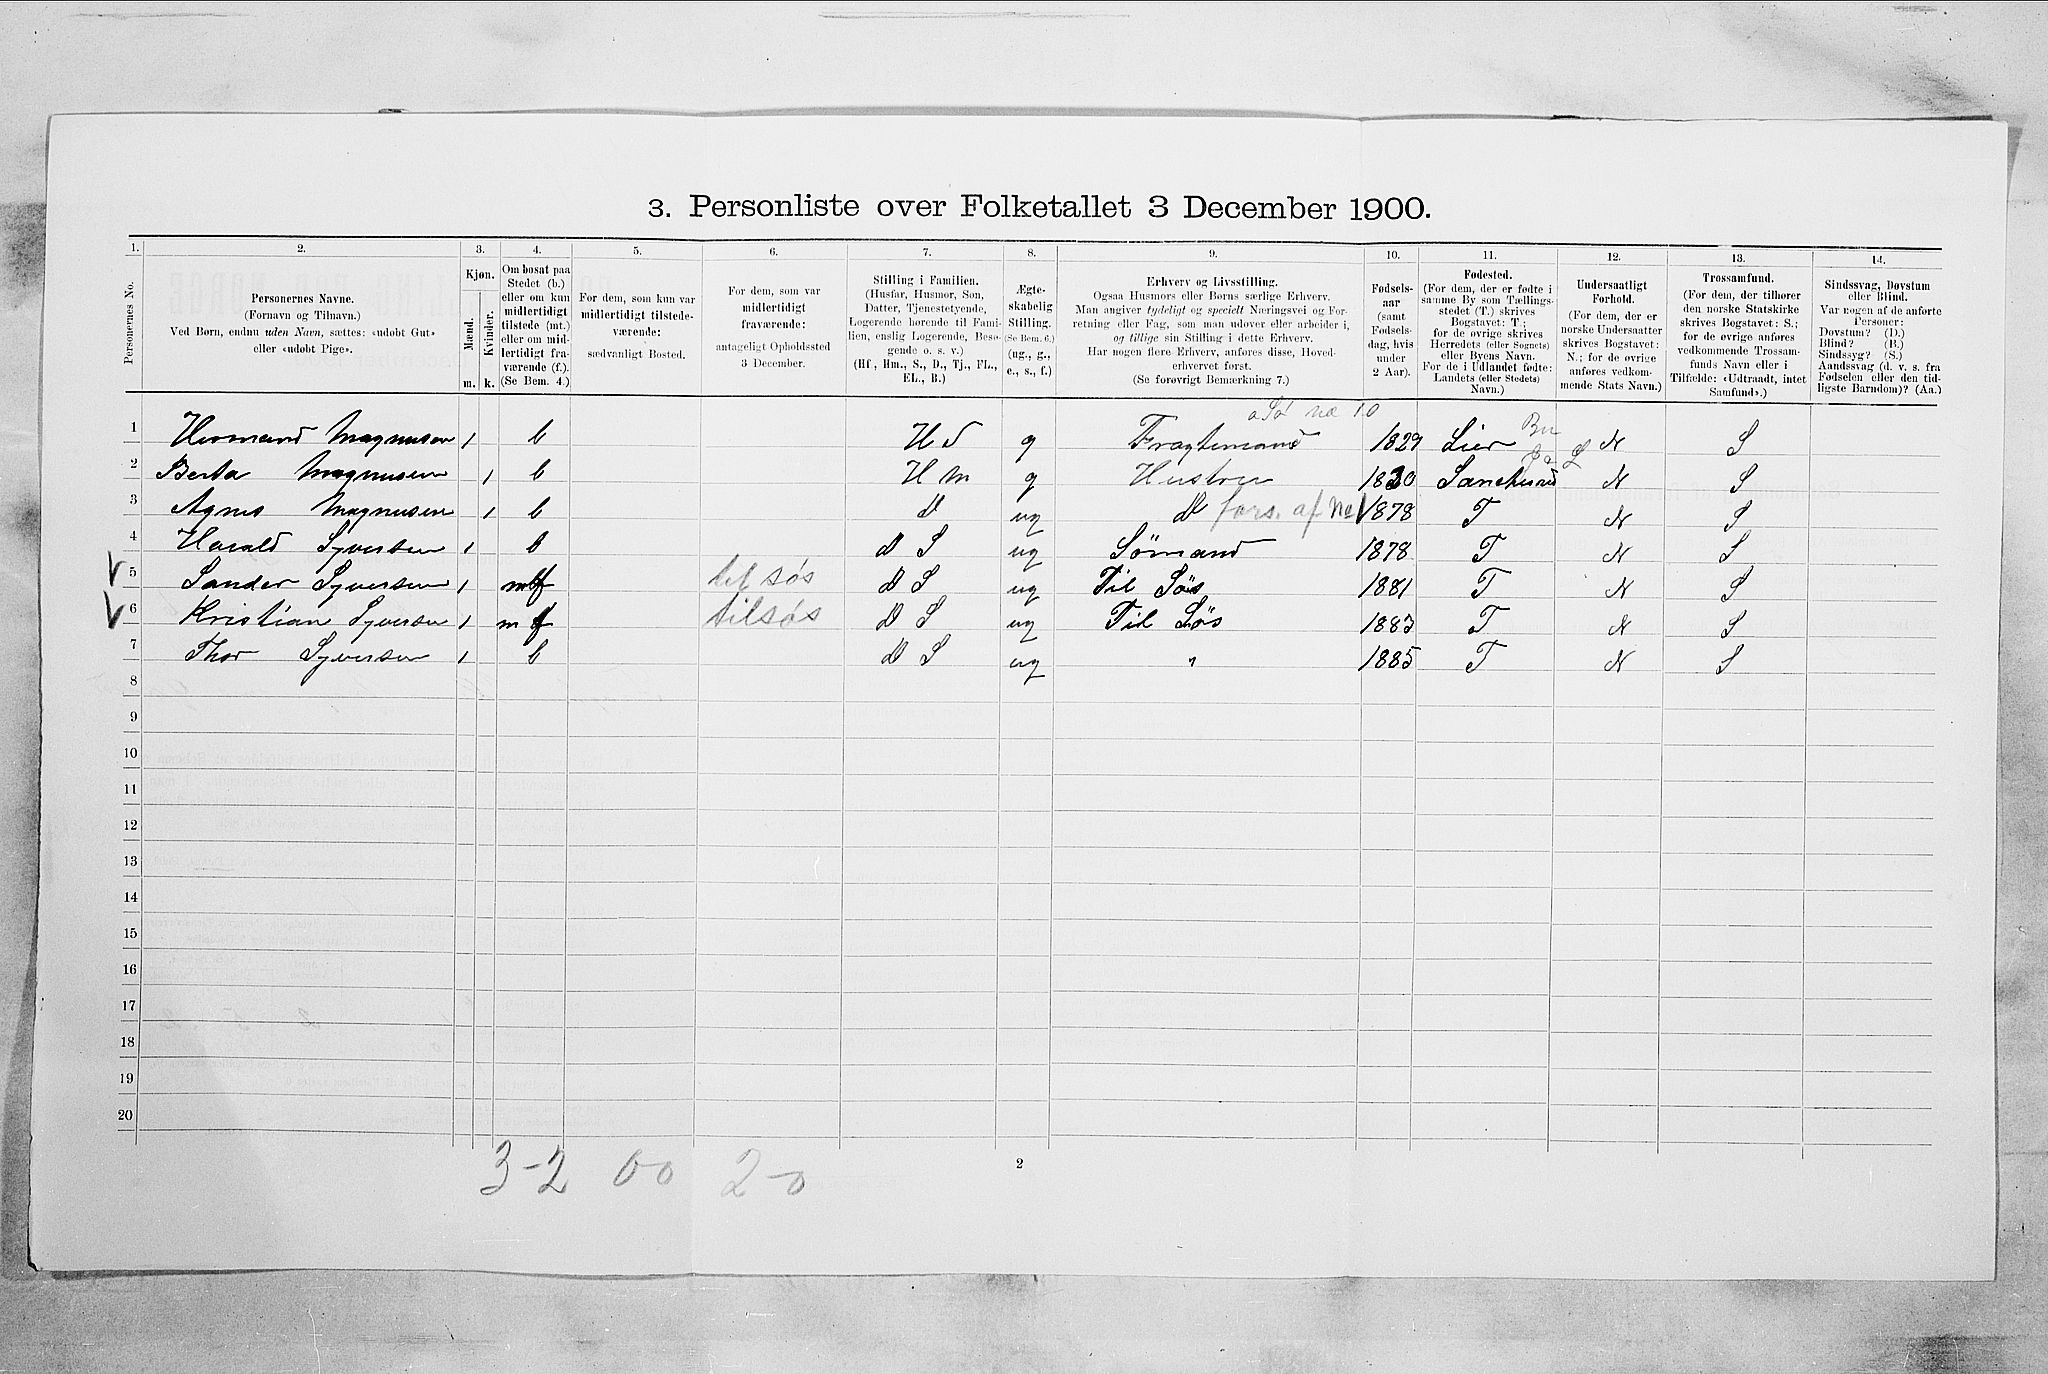 3. Personliste over Folketallet 3 December 1900.
1. 2. 3. 4. 5. 6. 7. 8. 9. 10. 11. 12. 13. 14.
Personernes No.
Personernes Navne.
(Fornavn og Tilnavn.)
Ved Børn, endnu uden Navn, sættes: «udøbt Gut»
eller «udøbt Pige».
Kjøn.
Mænd.
Kvinder.
m. k.
Om bosat paa
Stedet (b.)
eller om kun
midlertidigt
tilstede (mt.)
eller om mid-
lertidigt fra-
værende (f.).
(Se Bem. 4.)
For dem, som kun var
midlertidigt tilstede-
værende:
sædvanligt Bosted.
For dem, som var
midlertidigt
fraværende:
antageligt Opholdssted
3 December.
Stilling i Familien.
(Husfar, Husmor, Søn,
Datter, Tjenestetyende,
Logerende hørende til Fami-
lien, enslig Logerende, Besø-
gende o. s. v.)
(Hf., Hm., S., D., Tj., FL.,
EL., B.)
Ægte-
skabelig
Stilling.
(Se Bem. 6.)
(ug., g.,
e., s., f.)
Erhverv og Livsstilling.
Ogsaa Husmors eller Børns særlige Erhverv.
Man angiver tydeligt og specielt Næringsvei og For-
retning eller Fag, som man udøver eller arbeider i,
og tillige sin Stilling i dette Erhverv.
Har nogen flere Erhverv, anføres disse, Hoved-
erhvervet først.
(Se forøvrigt Bemærkning 7.)
Fødsels-
aar
(samt
Fødsels-
dag, hvis
under
2 Aar).
Fødested.
(For dem, der er fødte i
samme By som Tællings-
stedet (T.) skrives
Bogstavet: T.;
for de øvrige skrives
Herredets (eller Sognets)
eller Byens Navn.
For de i Udlandet fødte:
Landets (eller Stedets)
Navn.)
Undersaatligt
Forhold.
(For dem, der er
norske Undersaatter
skrives Bogstavet:
N.; for de øvrige
anføres vedkom-
mende Stats Navn.)
Trossamfund.
(For dem, der tilhører
den norske Statskirke
skrives Bogstavet: S.;
for de øvrige anføres
vedkommende Trossam-
funds Navn eller i
Tilfælde: «Udtraadt, intet
Samfund».)
Sindssvag, Døvstum
eller Blind.
Var nogen af de anførte
Personer:
Døvstum? (D.)
Blind? (B.)
Sindssyg? (S.)
Aandssvag (d. v. s. fra
Fødselen eller den tid-
ligste Barndom)? (Aa.)
1 Hermand Magnusen 1 b g Fragtemand 1829 Lier N S
2 Berta Magnusen 1 b Hm g Hustru 1830 N S
3 Agnes Magnusen 1 b d ug d fors. af No 1 1878 T N S
4 Harald Syversen 1 b d S ug Sömand 1878 T N S
5 Sander Syversen 1 til søs d S ug Til Søs 1881 T N S
6 Kristian Syversen 1 m f tilsøs d S ug Til Søs 1883 T N S
7 Thor Syversen 1 b d S ug " 1885 T N S
8
9
10
11
12
13
14
15
16
17
18
19
20
3-2 0-0 2-0
2